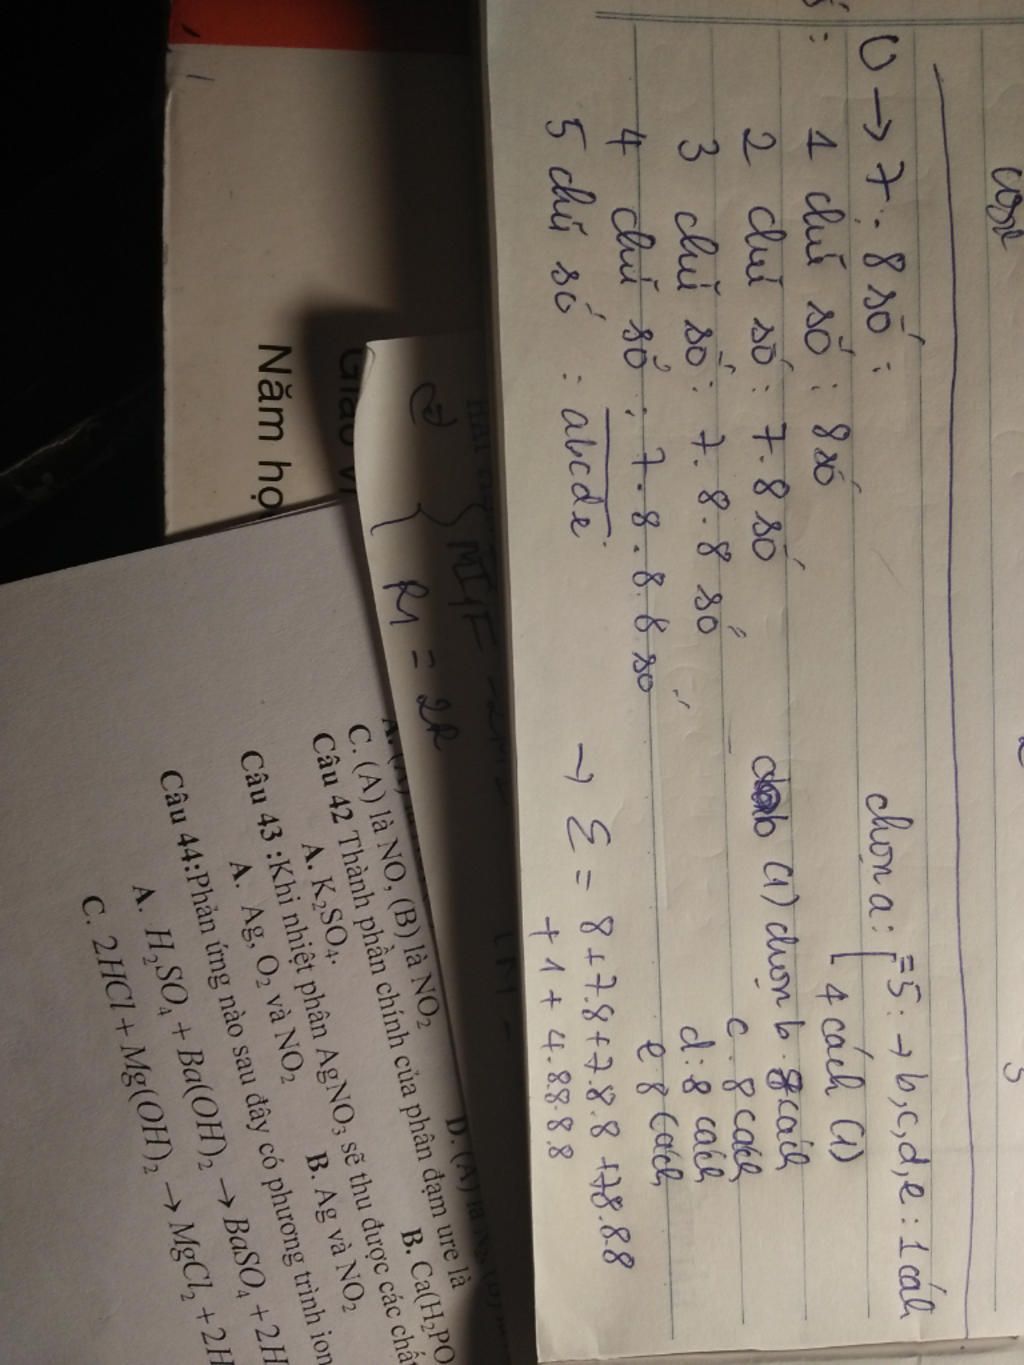 cosx
0 → 7: 8 số:
1 chữ số: 8 số
2 chữ số: 7.8 số
3 chữ số: 7.8.8 số
4 chữ số: 7.8.8.8 số
5 chữ số: abcde
chọn a: [ =5: → b,c,d,e: 1 cách
4 cách (1)
(1) chọn b: 8 cách
c: 8 cách
d: 8 cách
e: 8 cách
→ Σ = 8+7.8+7.8.8+7.8.8.8
+1+4.8.8.8.8
Năm họ
2R
C. (A) là NO, (B) là NO2
Câu 42 Thành phần chính của phân đạm ure là
A. K2SO4.
B. Ca(H2PO
Câu 43 :Khi nhiệt phân AgNO3 sẽ thu được các chấ
A. Ag, O2 và NO2
B. Ag và NO2
Câu 44:Phản ứng nào sau đây có phương trình ion
A. H2SO4 + Ba(OH)2 → BaSO4 + 2H
C. 2HCl + Mg(OH)2 → MgCl2 + 2H